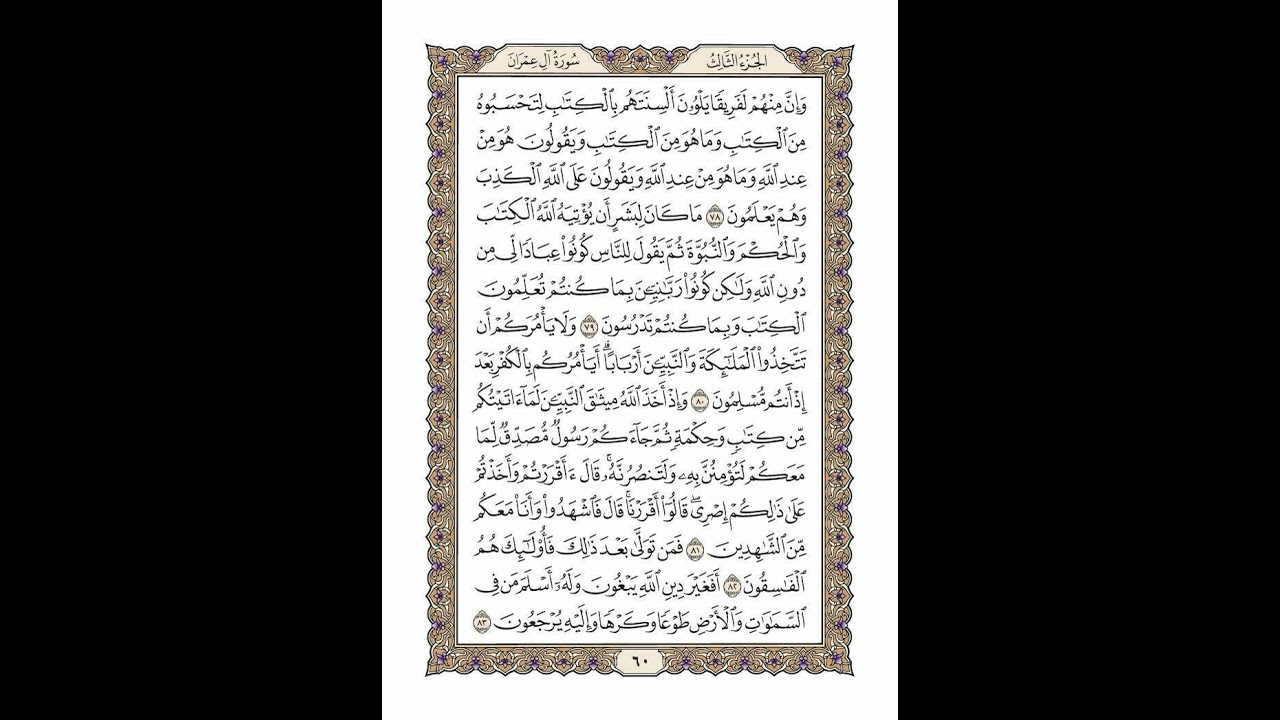 الجُزْءُ الثَّالِثُ
سُورَةُ آلِ عِمْرَانَ
وَإِنَّ مِنْهُمْ لَفَرِيقًا يَلْوُۥنَ أَلْسِنَتَهُم بِٱلْكِتَٰبِ لِتَحْسَبُوهُ
مِنَ ٱلْكِتَٰبِ وَمَا هُوَ مِنَ ٱلْكِتَٰبِ وَيَقُولُونَ هُوَ مِنْ
عِندِ ٱللَّهِ وَمَا هُوَ مِنْ عِندِ ٱللَّهِ وَيَقُولُونَ عَلَى ٱللَّهِ ٱلْكَذِبَ
وَهُمْ يَعْلَمُونَ ٧٨ مَا كَانَ لِبَشَرٍ أَن يُؤْتِيَهُ ٱللَّهُ ٱلْكِتَٰبَ
وَٱلْحُكْمَ وَٱلنُّبُوَّةَ ثُمَّ يَقُولَ لِلنَّاسِ كُونُوا۟ عِبَادًا لِّى مِن
دُونِ ٱللَّهِ وَلَٰكِن كُونُوا۟ رَبَّٰنِيِّۦنَ بِمَا كُنتُمْ تُعَلِّمُونَ
ٱلْكِتَٰبَ وَبِمَا كُنتُمْ تَدْرُسُونَ ٧٩ وَلَا يَأْمُرَكُمْ أَن
تَتَّخِذُوا۟ ٱلْمَلَٰٓئِكَةَ وَٱلنَّبِيِّۦنَ أَرْبَابًا ۗ أَيَأْمُرُكُم بِٱلْكُفْرِ بَعْدَ
إِذْ أَنتُم مُّسْلِمُونَ ٨٠ وَإِذْ أَخَذَ ٱللَّهُ مِيثَٰقَ ٱلنَّبِيِّۦنَ لَمَآ ءَاتَيْتُكُم
مِّن كِتَٰبٍ وَحِكْمَةٍ ثُمَّ جَآءَكُمْ رَسُولٌ مُّصَدِّقٌ لِّمَا
مَعَكُمْ لَتُؤْمِنُنَّ بِهِۦ وَلَتَنصُرُنَّهُۥ ۚ قَالَ ءَأَقْرَرْتُمْ وَأَخَذْتُمْ
عَلَىٰ ذَٰلِكُمْ إِصْرِى ۖ قَالُوٓا۟ أَقْرَرْنَا ۚ قَالَ فَٱشْهَدُوا۟ وَأَنَا۠ مَعَكُم
مِّنَ ٱلشَّٰهِدِينَ ٨١ فَمَن تَوَلَّىٰ بَعْدَ ذَٰلِكَ فَأُو۟لَٰٓئِكَ هُمُ
ٱلْفَٰسِقُونَ ٨٢ أَفَغَيْرَ دِينِ ٱللَّهِ يَبْغُونَ وَلَهُۥٓ أَسْلَمَ مَن فِى
ٱلسَّمَٰوَٰتِ وَٱلْأَرْضِ طَوْعًا وَكَرْهًا وَإِلَيْهِ يُرْجَعُونَ ٨٣
٦٠